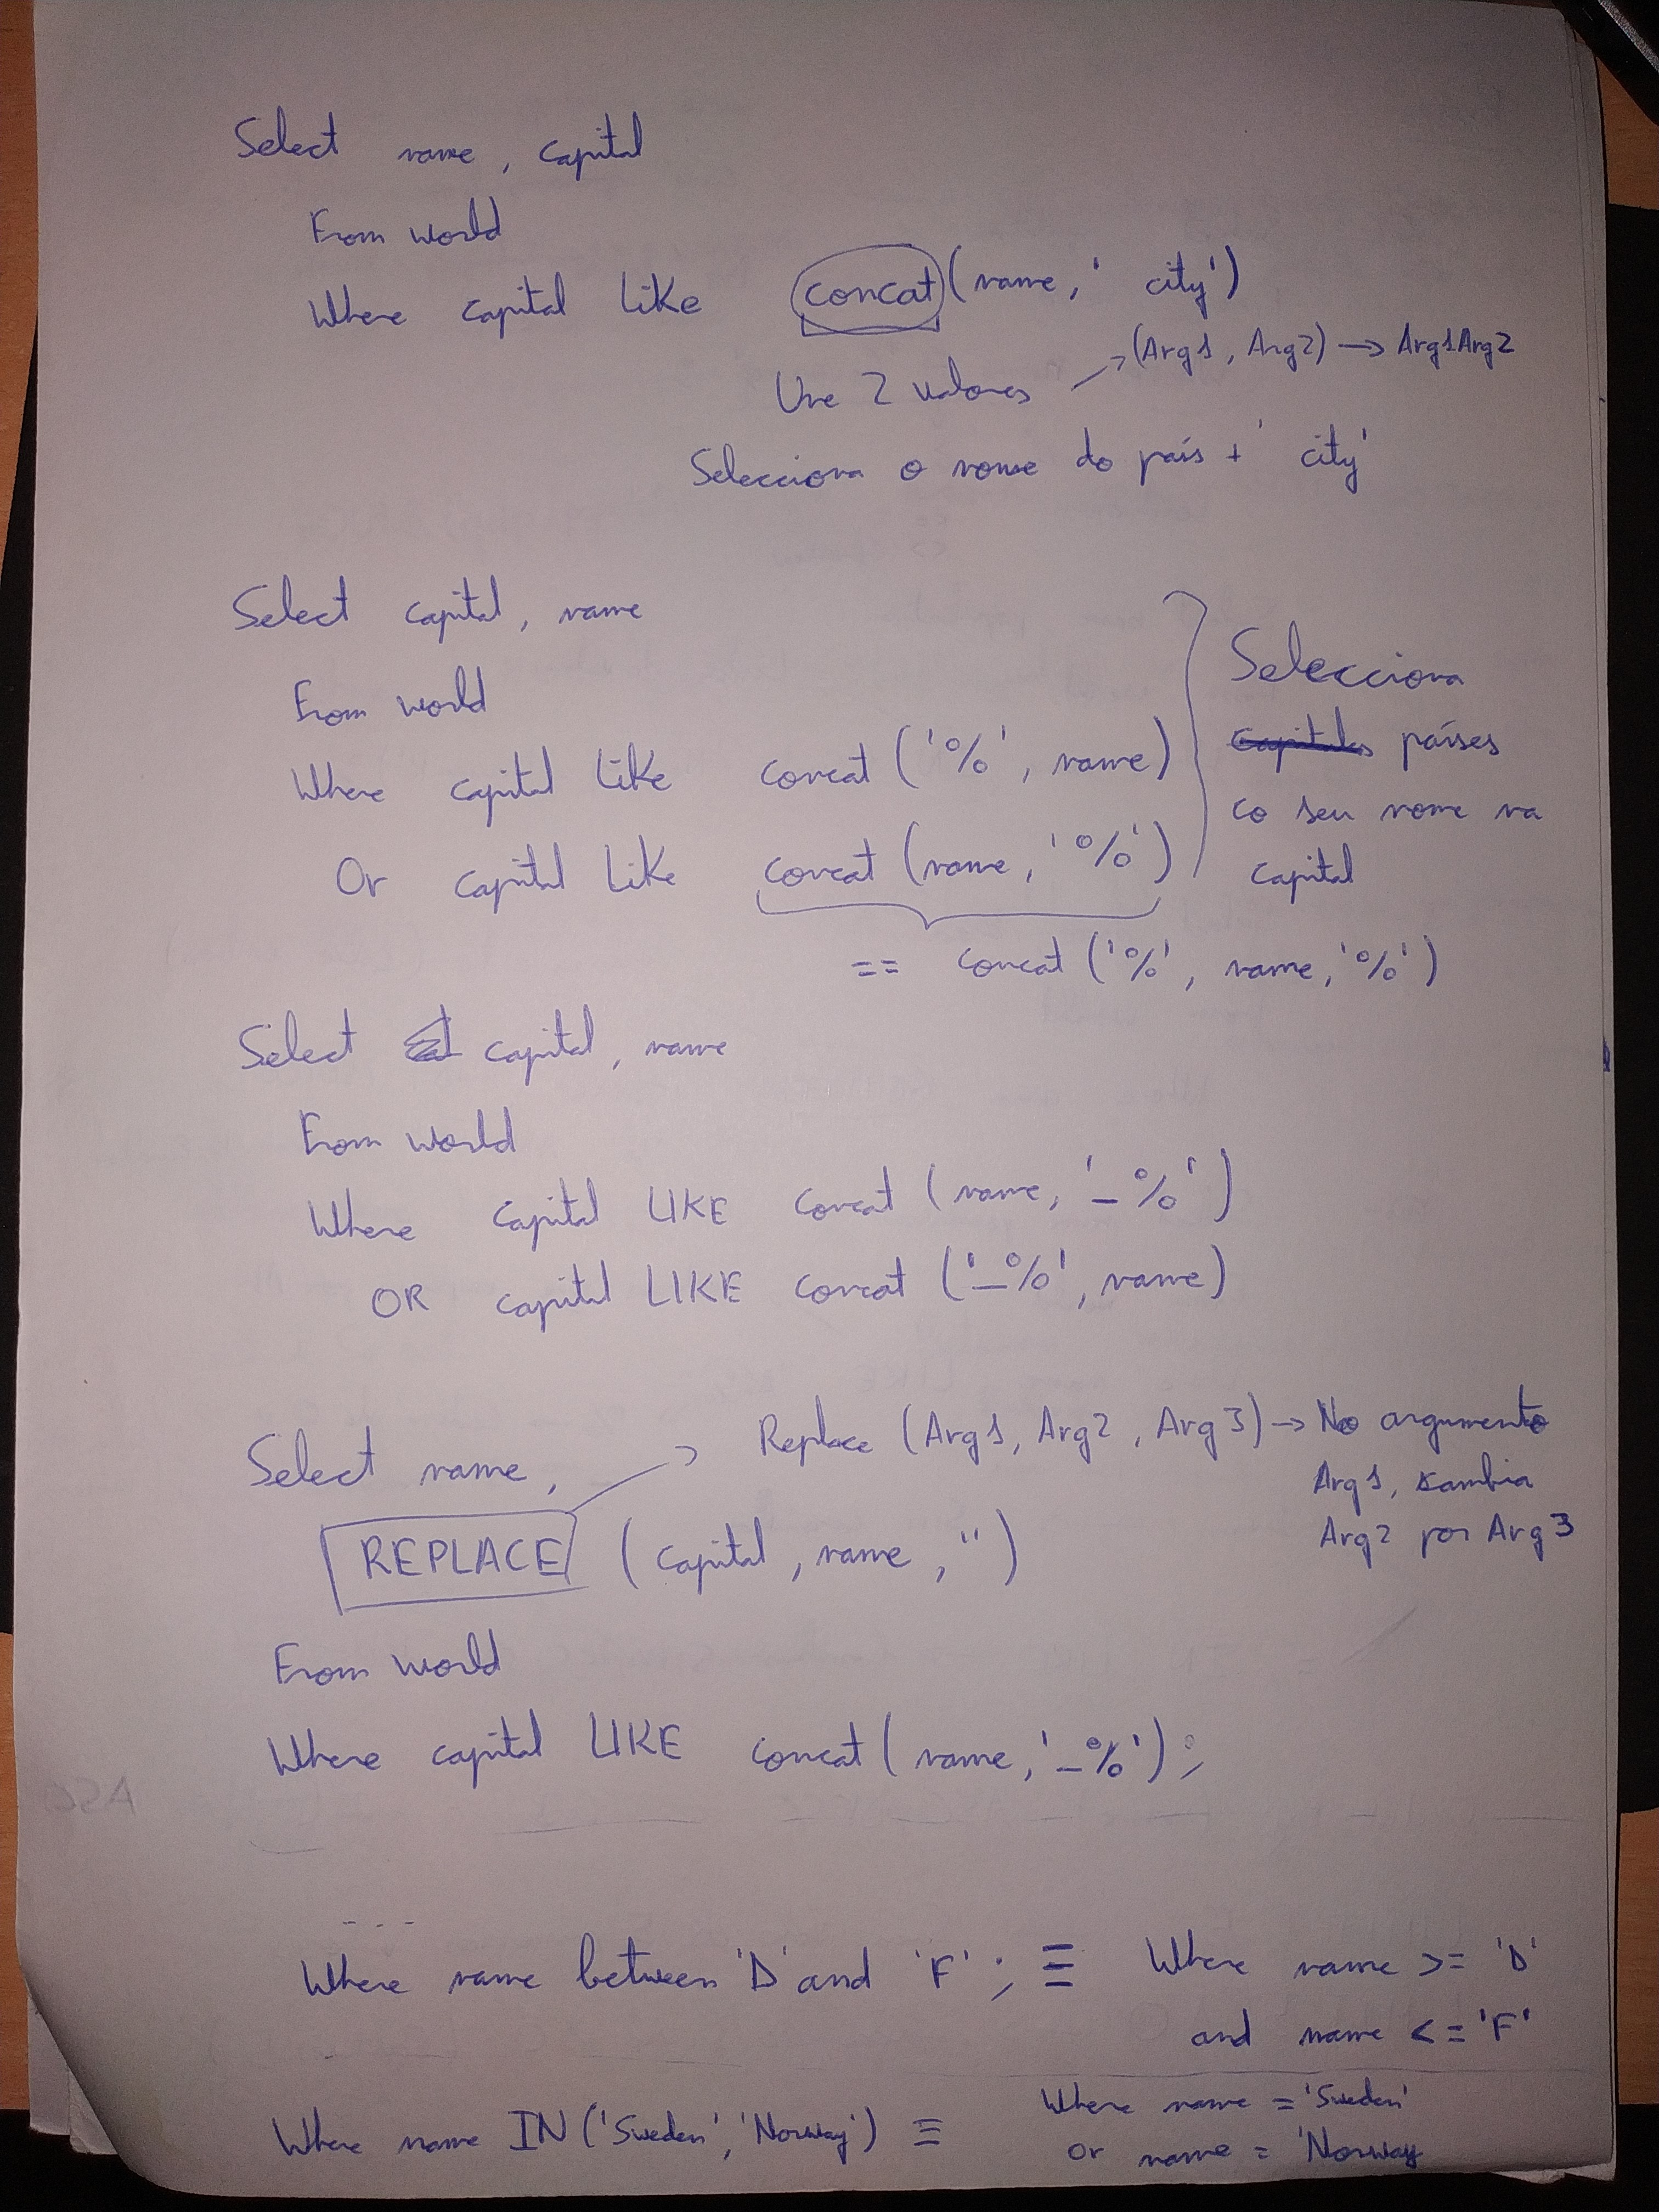 Select name, capital
From world
Where capital like concat(name,' city')
Une 2 valores → (Arg1, Arg2) → Arg1Arg2
Selecciona o nome do país + ' city'
Select capital, name
From world
Where capital like concat('%', name)
Or capital like concat(name, '%')
Selecciona
países
co seu nome na
capital
== concat('%', name, '%')
Select capital, name
From world
Where capital LIKE concat (name, '_%')
OR capital LIKE concat ('_%', name)
Select name,
→ Replace (Arg1, Arg2, Arg3) → No argumento
Arg1, cambia
Arg2 por Arg3
REPLACE (capital, name, '')
From world
Where capital LIKE concat(name, '_%');
...
Where name between 'D' and 'F'; ≡ Where name >= 'D'
and name <= 'F'
Where name IN ('Sweden', 'Norway') ≡ Where name = 'Sweden'
or name = 'Norway